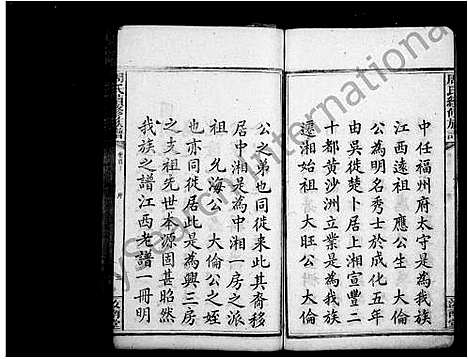 周氏續修族譜
中任福州府太守是為我族
江西遠祖 應公生 大倫
公為明名秀士於成化五年
由吳徙楚卜居上湘宣豐二
十都黃沙洲立業是為我族
遷湘始祖 大旺公 大倫
公之弟也同徙來此其裔移
居中湘是為中湘一房之派
祖 允海公 大倫公之姪
也亦同徙居此是為興三房
之支祖先世本源固甚昭然
我族之譜江西老譜一冊明
周氏續修族譜
卷首
序
汝南堂